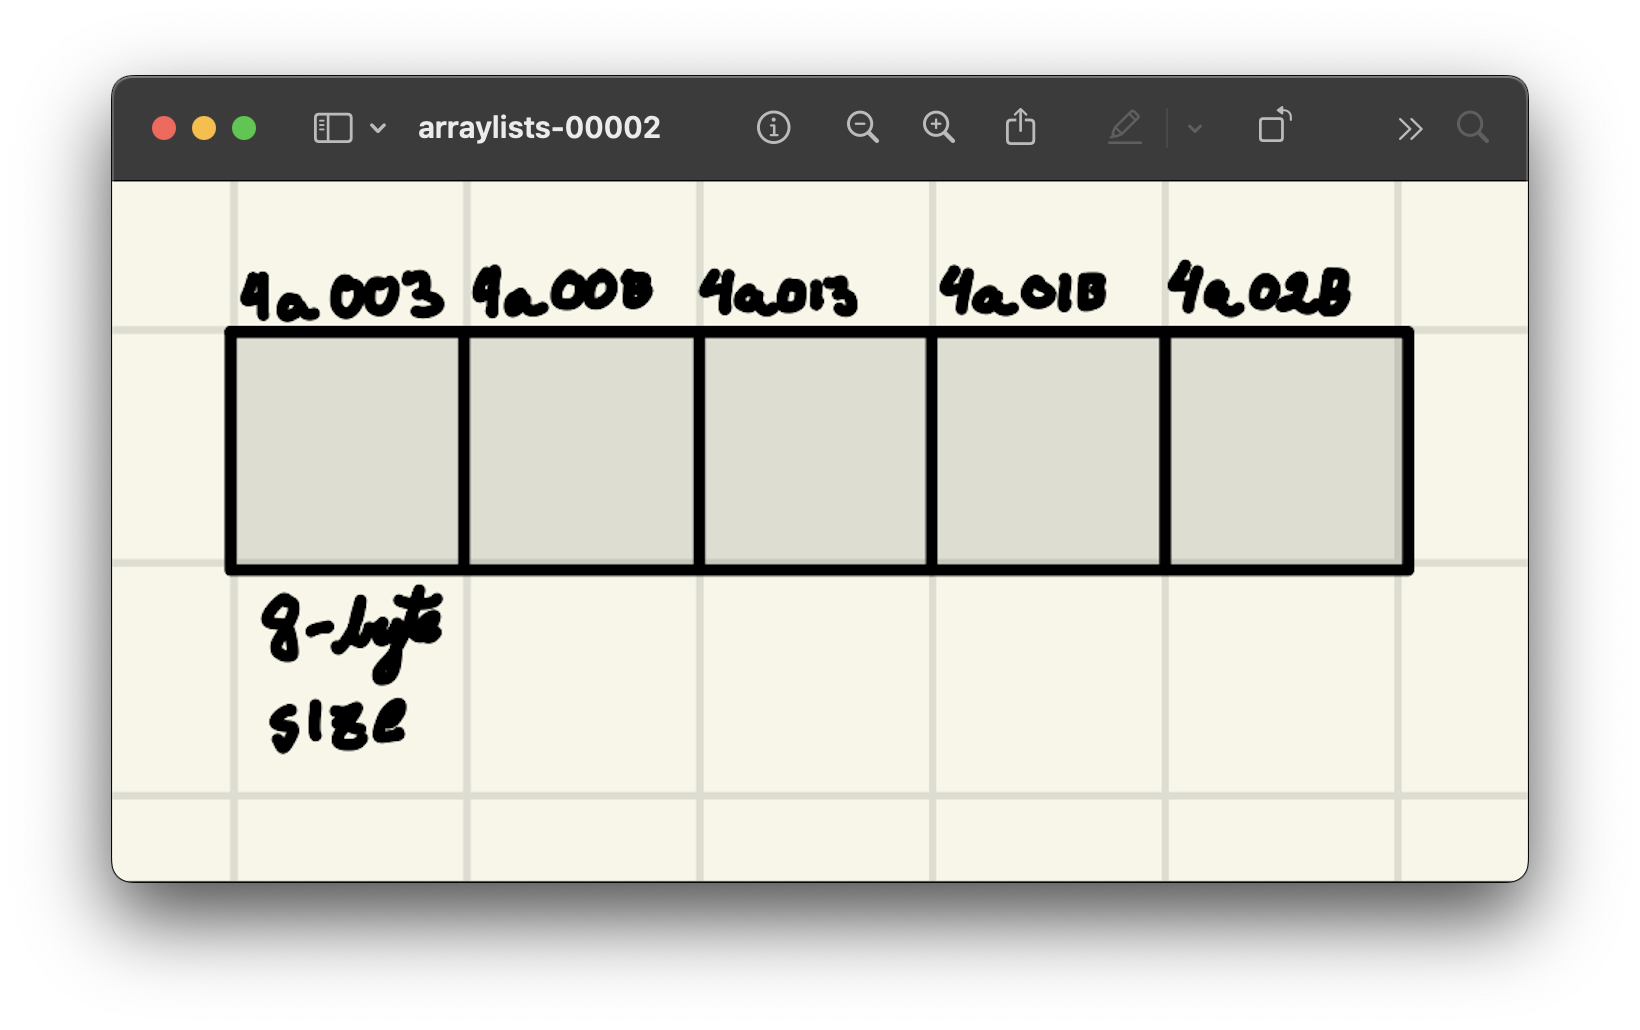 arraylists-00002
4a003 4a00B 4a013 4a01B 4a02B
8-byte
size